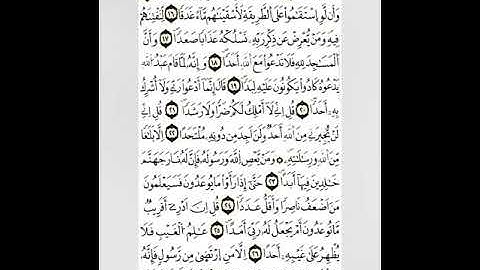 وَأَن لَّوِ اِسْتَقَٰمُواْ عَلَى اَلطَّرِيقَةِ لَأَسْقَيْنَٰهُم مَّآءً غَدَقاٗ ١٦ لِّنَفْتِنَهُمْ
فِيهِ وَمَنْ يُّعْرِضْ عَن ذِكْرِ رَبِّهِۦ نَسْلُكْهُ عَذَاباٗ صَعَداٗ ١٧ وَأَنَّ
اَلْمَسَٰجِدَ لِلهِ فَلَا تَدْعُواْ مَعَ اَللَّهِ أَحَداٗ ١٨ وَإِنَّهُۥ لَمَّا قَامَ عَبْدُ اُللَّهِ
يَدْعُوهُ كَادُواْ يَكُونُونَ عَلَيْهِ لِبَداٗ ١٩ قَالَ إِنَّمَآ أَدْعُواْ رَبِّے وَلَآ أُشْرِكُ
بِهِۦٓ أَحَداٗ ٢٠ قُلِ اِنِّے لَآ أَمْلِكُ لَكُمْ ضَرّاٗ وَلَا رَشَداٗ ٢١ قُلِ اِنِّے
لَنْ يُّجِيرَنِے مِنَ اَللَّهِ أَحَدٌ وَلَنَ اَجِدَ مِن دُونِهِۦ مُلْتَحَداً ٢٢ اِلَّا بَلَٰغاٗ
مِّنَ اَللَّهِ وَرِسَٰلَٰتِهِۦ وَمَنْ يَّعْصِ اِللَّهَ وَرَسُولَهُۥ فَإِنَّ لَهُۥ نَارَ جَهَنَّمَ
خَٰلِدِينَ فِيهَآ أَبَداً ٢٣ حَتَّىٰٓ إِذَا رَأَوْاْ مَا يُوعَدُونَ فَسَيَعْلَمُونَ
مَنَ اَضْعَفُ نَاصِراٗ وَأَقَلُّ عَدَداٗ ٢٤ قُلِ اِنَ اَدْرِےٓ أَقَرِيبٌ
مَّا تُوعَدُونَ أَمْ يَجْعَلُ لَهُۥ رَبِّيَ أَمَداً ٢٥ عَٰلِمُ اُلْغَيْبِ فَلَا
يُظْهِرُ عَلَىٰ غَيْبِهِۦٓ أَحَداً ٢٦ اِلَّا مَنِ اِرْتَضَىٰ مِن رَّسُولٖ فَإِنَّهُۥ